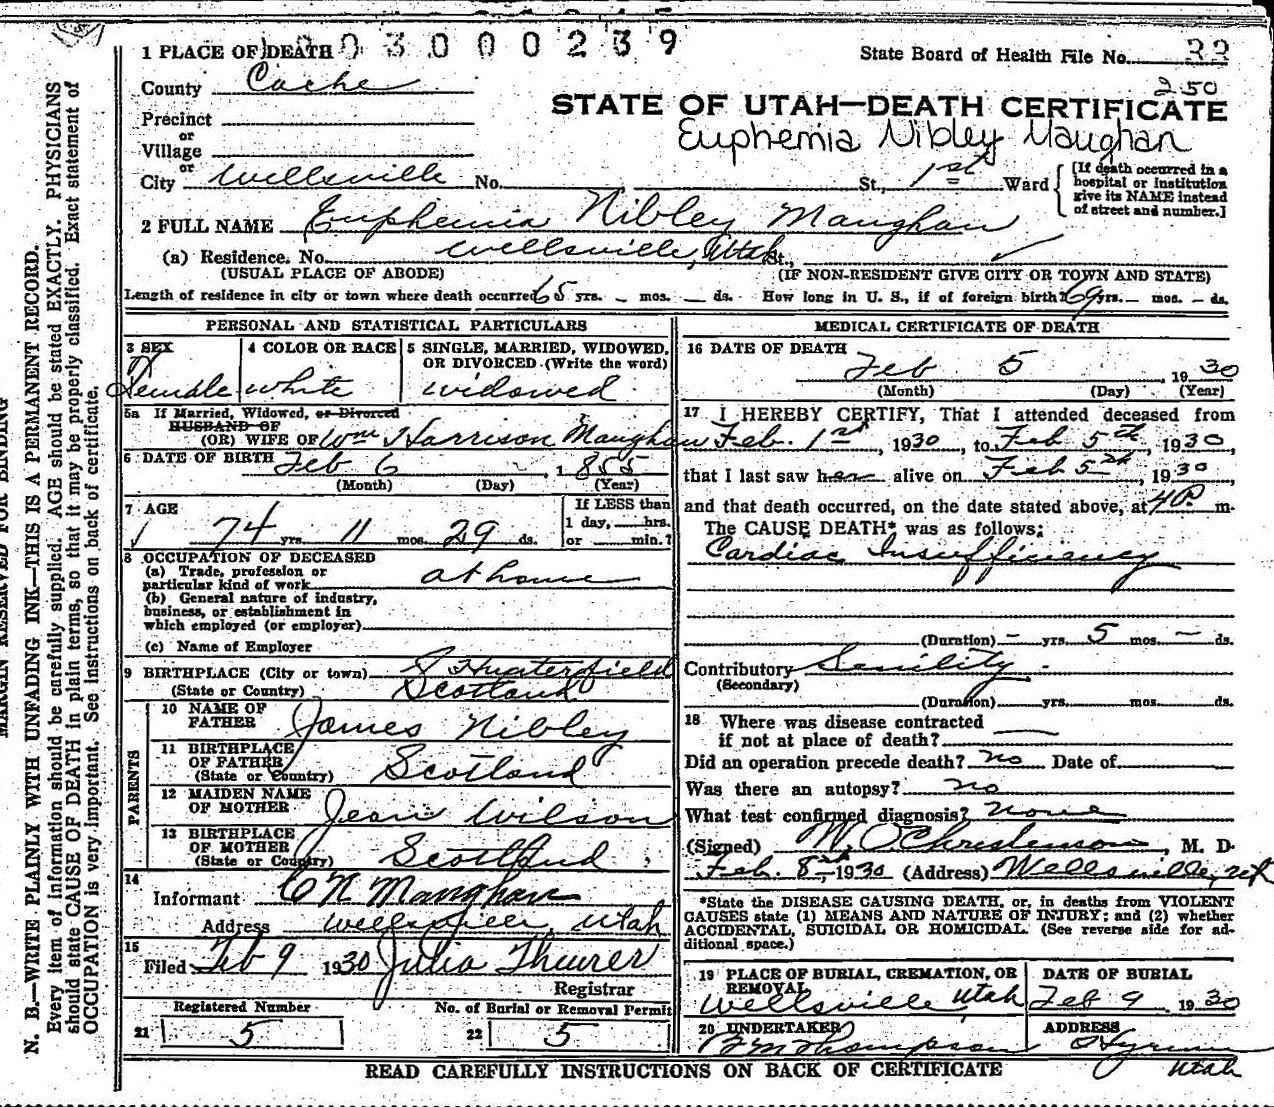 1 PLACE OF DEATH 3 0 0 0 0 2 3 9 State Board of Health File No. 33
County Cache 250
STATE OF UTAH—DEATH CERTIFICATE
Precinct
Euphemia Nibley Maughan
or
Village
or
City Wellsville No. St., 1st Ward [If death occurred in a hospital or institution give its NAME instead of street and number.]
2 FULL NAME Euphemia Nibley Maughan
(a) Residence. No. Wellsville, Utah St.,
(USUAL PLACE OF ABODE) (IF NON-RESIDENT GIVE CITY OR TOWN AND STATE)
Length of residence in city or town where death occurred 65 yrs. - mos. - ds. How long in U. S., if of foreign birth? 69 yrs. - mos. - ds.
PERSONAL AND STATISTICAL PARTICULARS
3 SEX
Female
4 COLOR OR RACE
white
5 SINGLE, MARRIED, WIDOWED, OR DIVORCED (Write the word)
widowed
5a If Married, Widowed, or Divorced
HUSBAND OF
(OR) WIFE OF Wm Harrison Maughan
6 DATE OF BIRTH Feb 6, 1855
(Month) (Day) (Year)
7 AGE
74 yrs. 11 mos. 29 ds.
If LESS than
1 day, hrs.
or min.?
8 OCCUPATION OF DECEASED
(a) Trade, profession or
particular kind of work at home
(b) General nature of industry,
business, or establishment in
which employed (or employer)
(c) Name of Employer
9 BIRTHPLACE (City or town) Hunterfield
(State or Country) Scotland
PARENTS
10 NAME OF FATHER James Nibley
11 BIRTHPLACE OF FATHER
(State or Country) Scotland
12 MAIDEN NAME OF MOTHER Jean Wilson
13 BIRTHPLACE OF MOTHER
(State or Country) Scotland
14
Informant C N Maughan
Address Wellsville, Utah
15
Filed Feb 9 1930 Julia Theurer
Registrar
Registered Number
21 5
No. of Burial or Removal Permit
22 5
MEDICAL CERTIFICATE OF DEATH
16 DATE OF DEATH
Feb 5, 1930
(Month) (Day) (Year)
17 I HEREBY CERTIFY, That I attended deceased from
Feb. 1st, 1930, to Feb 5th, 1930,
that I last saw her alive on Feb 5th, 1930,
and that death occurred, on the date stated above, at 4 P. m.
The CAUSE DEATH* was as follows:
Cardiac Insufficiency
(Duration) - yrs. 5 mos. - ds.
Contributory Senility
(Secondary)
(Duration) yrs. mos. ds.
18 Where was disease contracted
if not at place of death?
Did an operation precede death? no Date of
Was there an autopsy? no
What test confirmed diagnosis? None
(Signed) W. O. Christenson, M. D.
Feb. 8th, 1930 (Address) Wellsville, Utah
*State the DISEASE CAUSING DEATH, or, in deaths from VIOLENT
CAUSES state (1) MEANS AND NATURE OF INJURY; and (2) whether
ACCIDENTAL, SUICIDAL OR HOMICIDAL. (See reverse side for ad-
ditional space.)
19 PLACE OF BURIAL, CREMATION, OR REMOVAL
Wellsville Utah
DATE OF BURIAL
Feb 9 1930
20 UNDERTAKER
Thompson
ADDRESS
Hyrum
Utah
READ CAREFULLY INSTRUCTIONS ON BACK OF CERTIFICATE
MARGIN RESERVED FOR BINDING
N. B.—WRITE PLAINLY WITH UNFADING INK—THIS IS A PERMANENT RECORD.
Every item of information should be carefully supplied. AGE should be stated EXACTLY. PHYSICIANS
should state CAUSE OF DEATH in plain terms, so that it may be properly classified. Exact statement of
OCCUPATION is very important. See instructions on back of certificate.